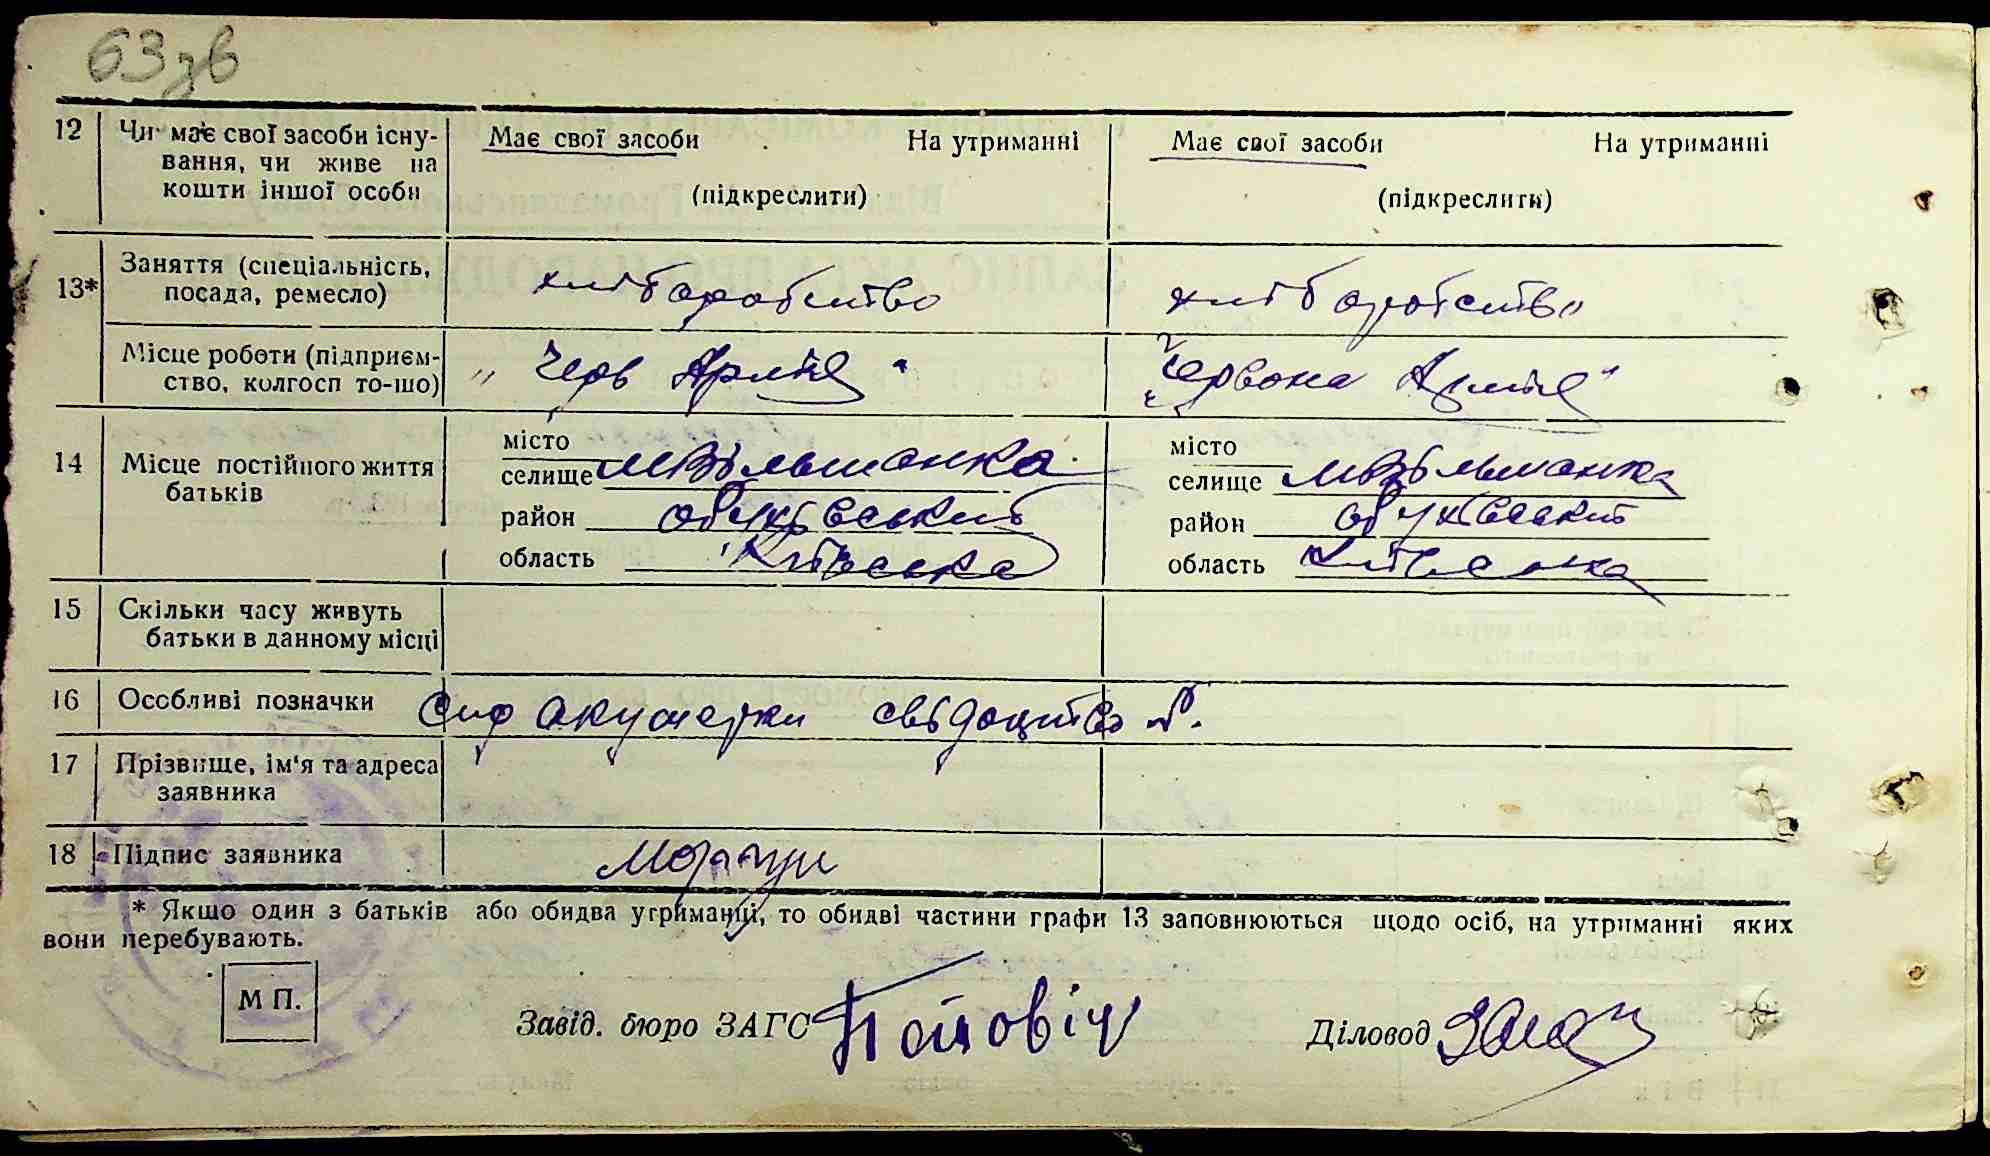 63 зв
12 Чи має свої засоби існу- Має свої засоби На утриманні Має свої засоби На утриманні
вання, чи живе на
кошти іншої особи (підкреслити) (підкреслити)
13* Заняття (спеціальність, хліборобство хліборобство
посада, ремесло)
Місце роботи (підприєм- „Черв Армія" Червона Армія"
ство, колгосп то-що)
14 Місце постійного життя місто місто
батьків селище мВільшанка селище мВільшанка
район обухівський район обухівський
область Київська область Київська
15 Скільки часу живуть
батьки в данному місці
16 Особливі позначки акушерки свідоцтво
17 Прізвище, ім'я та адреса
заявника
18 Підпис заявника
* Якшо один з батьків або обидва утриманці, то обидві частини графи 13 заповнюються щодо осіб, на утриманні яких
вони перебувають.
М П.
Завід. бюро ЗАГС Попович Діловод